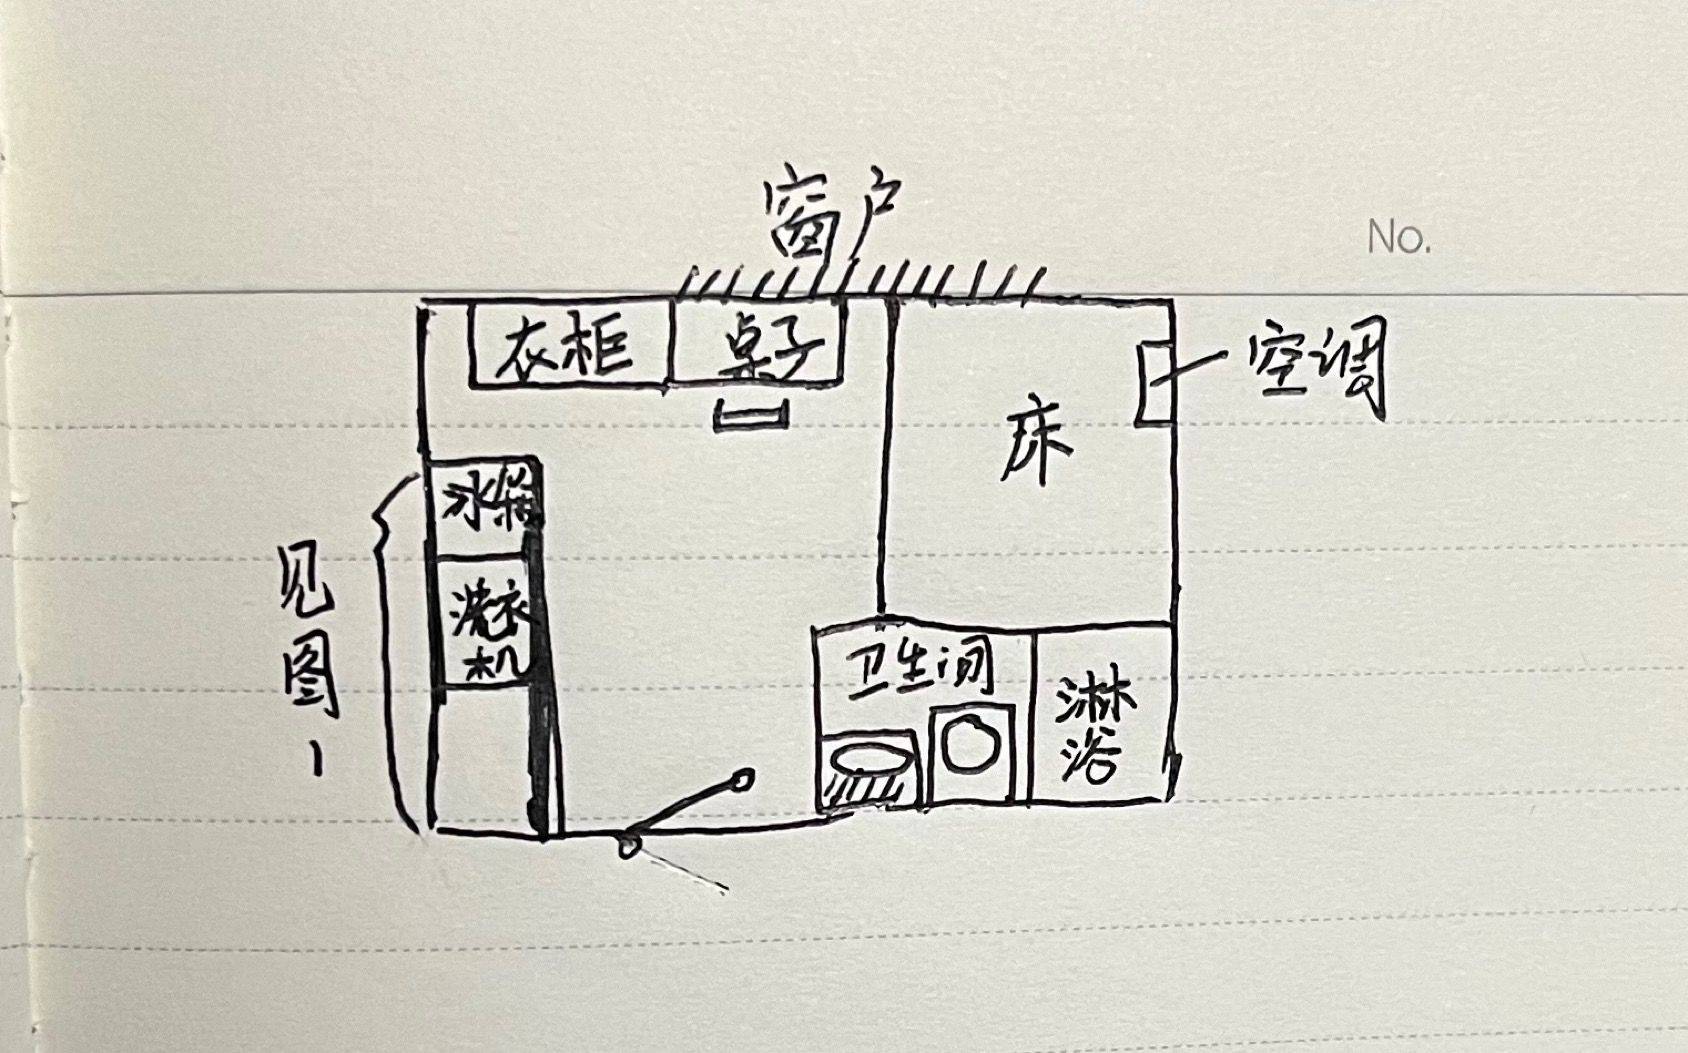 窗户
No.
衣柜
桌子
空调
床
冰箱
洗衣
机
见
图
1
卫生间
淋
浴